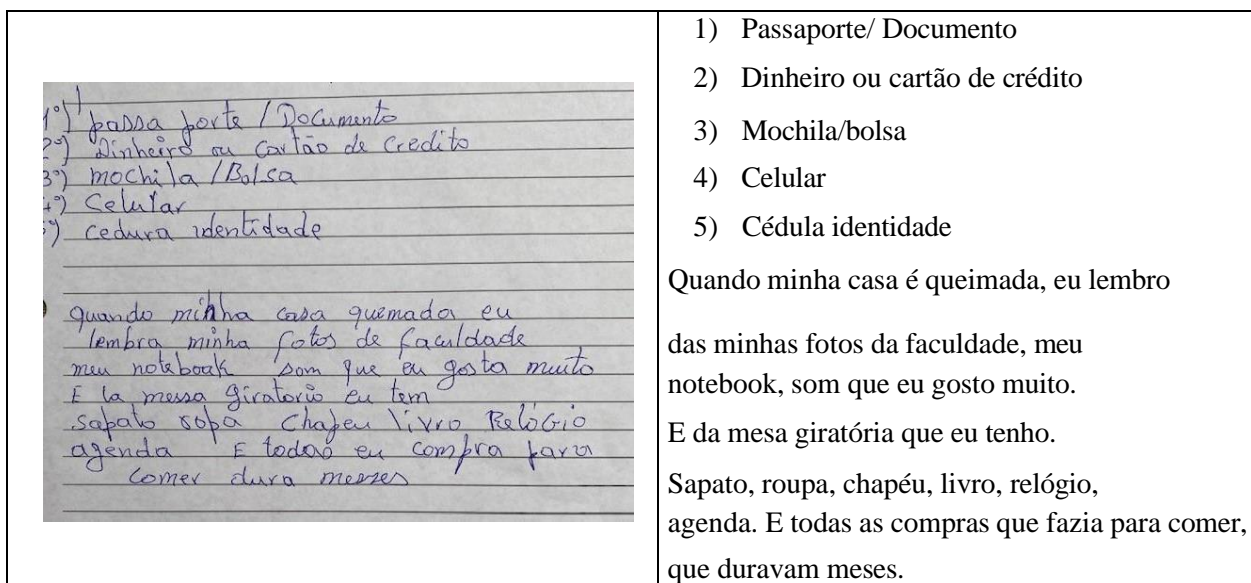 1º) passa porte / Documento
2º) Dinheiro ou Cartão de Credito
3º) mochila / Bolsa
4º) Celular
) cedura identidade
quando minha casa queimada eu
lembra minha fotos de faculdade
meu notebook som que eu gosta muito
E la messa giratorio eu tem
sapato ropa chapeu livro Relógio
agenda E todas eu compra para
comer dura messes
1) Passaporte/ Documento
2) Dinheiro ou cartão de crédito
3) Mochila/bolsa
4) Celular
5) Cédula identidade
Quando minha casa é queimada, eu lembro
das minhas fotos da faculdade, meu
notebook, som que eu gosto muito.
E da mesa giratória que eu tenho.
Sapato, roupa, chapéu, livro, relógio,
agenda. E todas as compras que fazia para comer,
que duravam meses.